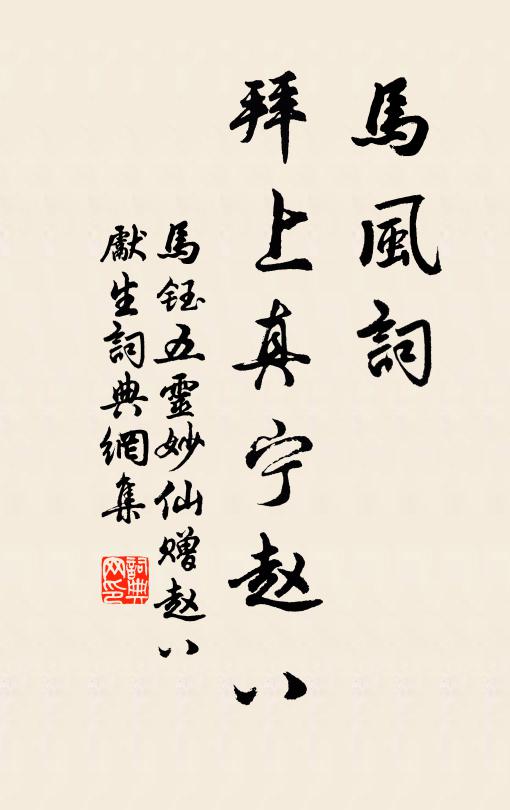 馬風詞
拜上真宁赵八
馬鈺五靈妙仙赠赵八
獻生詞典網集
詞典网印